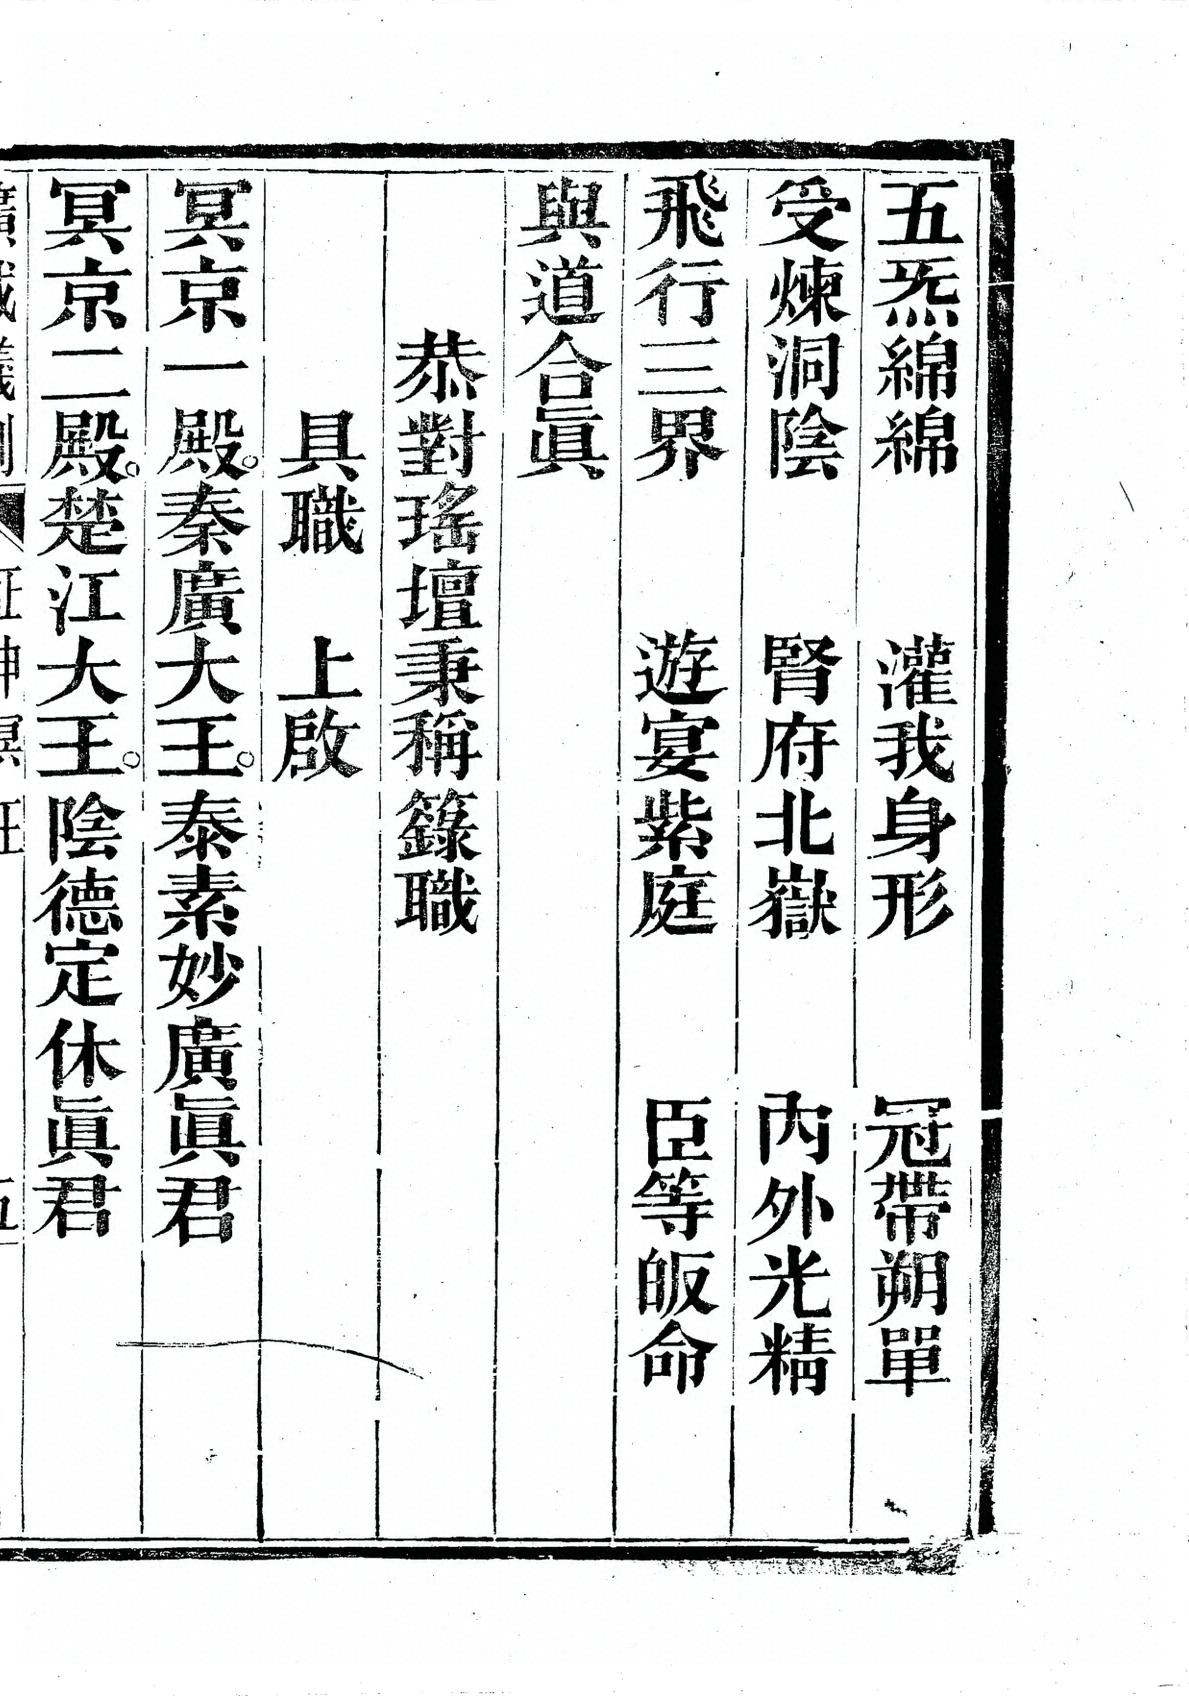 五炁綿綿　灌我身形　冠帶朔單
受煉洞陰　腎府北嶽　內外光精
飛行三界　遊宴紫庭　臣等皈命
與道合眞
恭對瑤壇秉稱籙職
具職　上啟
冥京一殿。秦廣大王。泰素妙廣眞君
冥京二殿。楚江大王。陰德定休眞君
廣成儀制　五